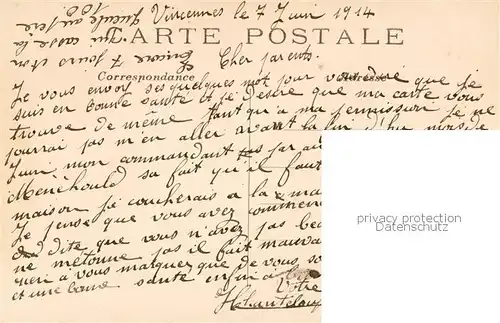 Vincennes le 7 Juin 1914
CARTE POSTALE
Cher parents
Correspondance
Adresse
Je vous envoy ses quelques mot pour vous dire que je
suis en bonne santé et je désire que ma carte vous
trouve de même tant qu'a ma permission je ne
pourrai pas m'en aller avant la fin du mois de
Juin mon commandant par
Menéhould sa fait qu'il faut
maison je coucherais a la
Je pense que vous avez commenc
dite que vous n'avez pas bea
ne métonne pas il fait mauva
rien a vous marquer que de vous so
et une bonne santé enfin a
Votre
privacy protection
Datenschutz